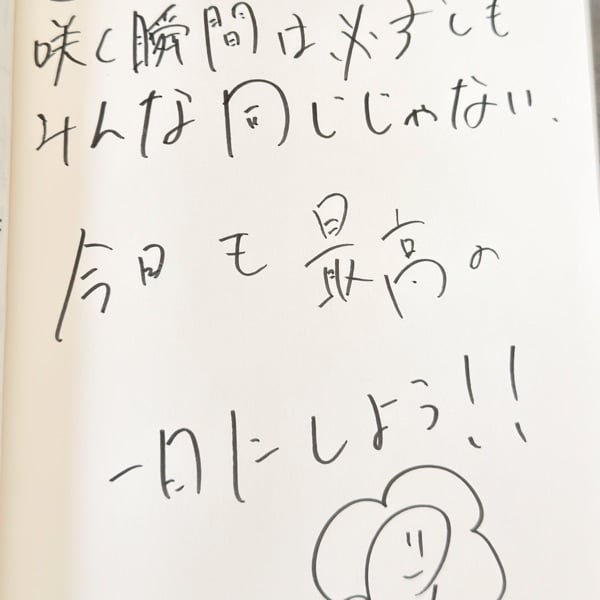 咲く瞬間は必ずしも
みんな同じじゃない.
今日も最高の
一日にしよう!!